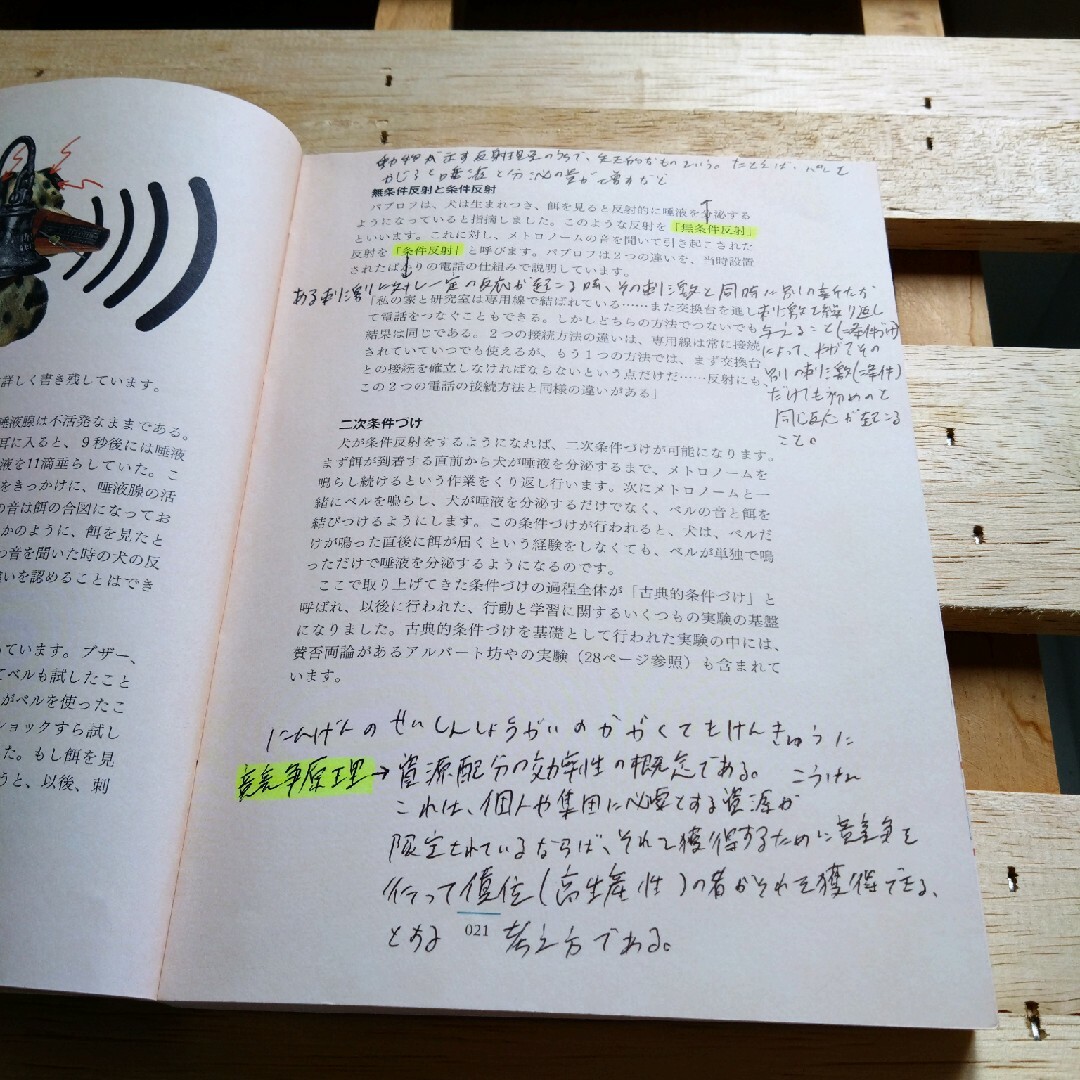 詳しく書き残しています。
唾液腺は不活発なままである。
耳に入ると、9秒後には唾液
液を11滴垂らしていた。こ
をきっかけに、唾液腺の活
の音は餌の合図になってお
かのように、餌を見たと
の音を聞いた時の犬の反
違いを認めることはでき
っています。ブザー、
てベルも試したこと
がベルを使ったこ
ショックすら試し
た。もし餌を見
うと、以後、刺
動物が示す反射現象のうちで、生得的なものという。たとえば、パンを
かじると唾液と分泌の量が増すなど
無条件反射と条件反射
パブロフは、犬は生まれつき、餌を見ると反射的に唾液を分泌する
ようになっていると指摘しました。このような反射を「無条件反射」
といいます。これに対し、メトロノームの音を聞いて引き起こされた
反射を「条件反射」と呼びます。パブロフは2つの違いを、当時設置
されたばかりの電話の仕組みで説明しています。
ある刺激に対し一定の反応が起こる時、その刺激と同時に別の
「私の家と研究室は専用線で結ばれている……また交換台を通し
て電話をつなぐこともできる。しかしどちらの方法でつないでも
結果は同じである。2つの接続方法の違いは、専用線は常に接続
されていていつでも使えるが、もう1つの方法では、まず交換台
との接続を確立しなければならないという点だけだ……反射にも、
この2つの電話の接続方法と同様の違いがある」
刺激を繰り返し
与えること(に条件づけ)
によって、やがてその
別の刺激(に条件)
だけでも初めのと
同じ反応が起こる
こと。
二次条件づけ
犬が条件反射をするようになれば、二次条件づけが可能になります。
まず餌が到着する直前から犬が唾液を分泌するまで、メトロノームを
鳴らし続けるという作業をくり返し行います。次にメトロノームと一
緒にベルを鳴らし、犬が唾液を分泌するだけでなく、ベルの音と餌を
結びつけるようにします。この条件づけが行われると、犬は、ベルだ
けが鳴った直後に餌が届くという経験をしなくても、ベルが単独で鳴
っただけで唾液を分泌するようになるのです。
ここで取り上げてきた条件づけの過程全体が「古典的条件づけ」と
呼ばれ、以後に行われた、行動と学習に関するいくつもの実験の基盤
になりました。古典的条件づけを基礎として行われた実験の中には、
賛否両論があるアルバート坊やの実験（28ページ参照）も含まれて
います。
にんげんのせいしんしょうがいのかがくてきけんきゅうに
こうけん
競争原理→資源配分の効率性の概念である。
これは、個人や集団に必要とする資源が
限定されているならば、それを獲得するために競争を
行って優位(高生産性)の者がそれを獲得できる、
とする 考え方である。
021